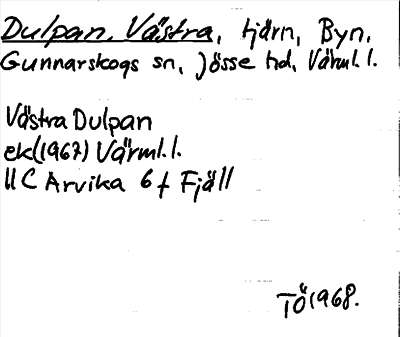 Dulpan, Västra, tjärn, Byn,
Gunnarskogs sn, Jösse hd, Värml. l.
Västra Dulpan
ek (1967) Värml. l.
11 C Arvika 6 f Fjäll
TÖ 1968.